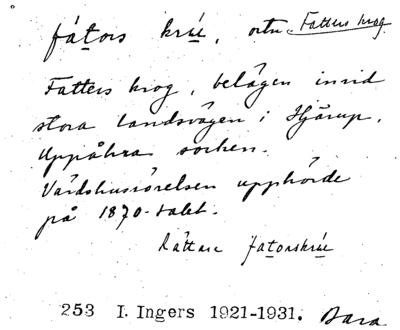 fátors krúi, ortn. Fatters krog
Fatters krog, belägen invid
stora landsvägen i Hjärup,
Uppåkra socken.
Värdshusrörelsen upphörde
på 1870-talet.
Rättare fatorskrúi
253 I. Ingers 1921-1931. Bara